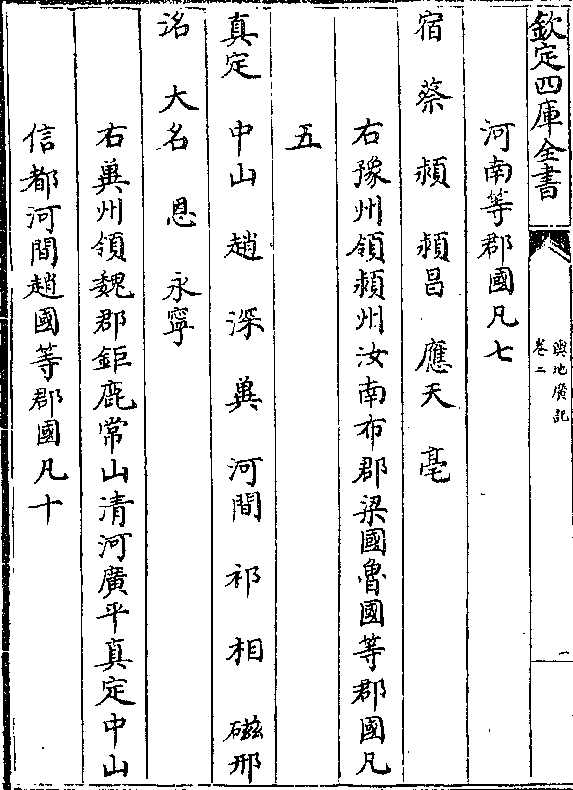 欽定四庫全書
輿地廣記
卷二
一
河南等郡國凡七
宿 蔡 潁 潁昌 應天 亳
右豫州領潁州汝南布郡梁國魯國等郡國凡
五
真定 中山 趙 深 冀 河間 祁 相 磁 邢
洺 大名 恩 永寧
右冀州領魏郡鉅鹿常山清河廣平真定中山
信都河間趙國等郡國凡十